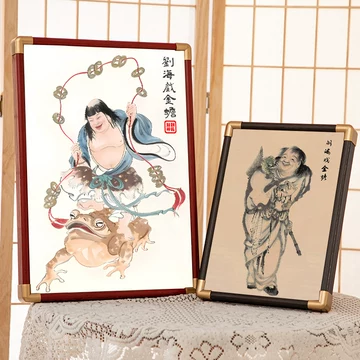 劉海戲金蟾
刘海戏金蟾